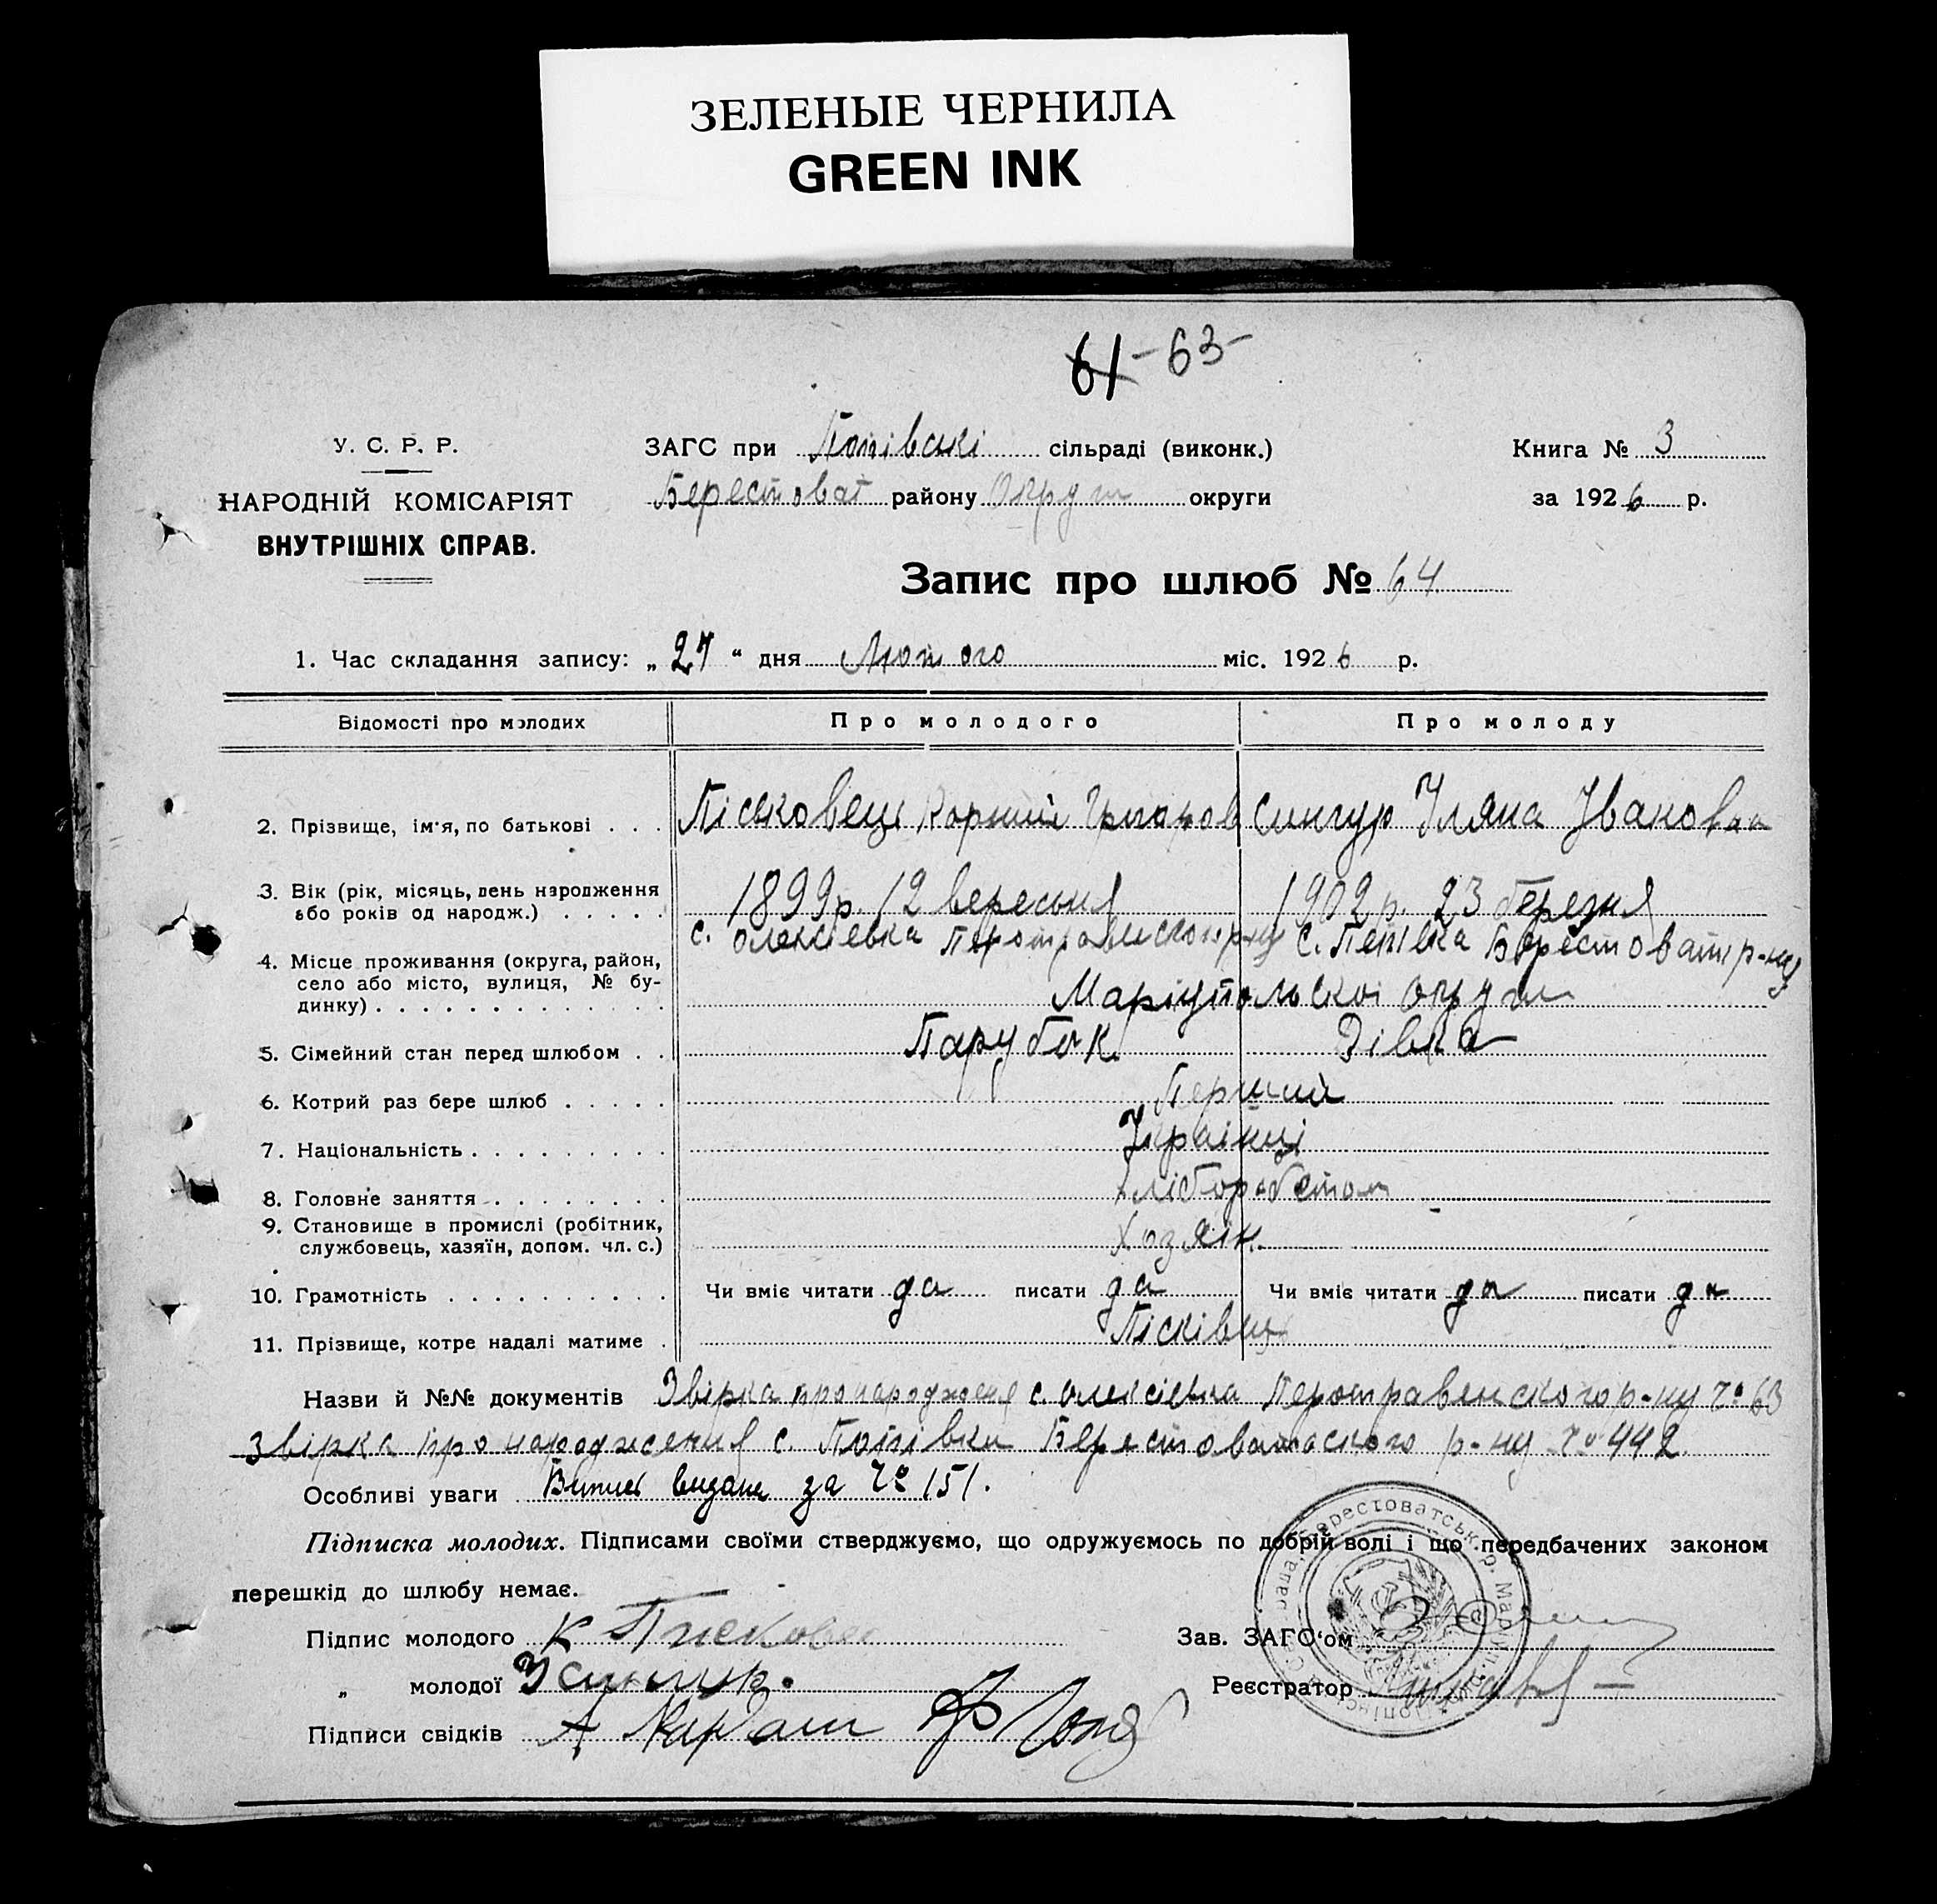 ЗЕЛЕНЫЕ ЧЕРНИЛА
GREEN INK
61 - 63 -
У. С. Р. Р.
НАРОДНІЙ КОМІСАРІЯТ
ВНУТРІШНІХ СПРАВ.
ЗАГС при Попівські сільраді (виконк.)
Берестоват району Округи округи
Книга № 3
за 1926 р.
Запис про шлюб № 64
1. Час складання запису: „27“ дня Лютого міс. 1926 р.
Відомості про молодих Про молодого Про молоду
2. Прізвище, ім'я, по батькові . . . Піськовець Корний Григоров Сингур Уляна Івановна
3. Вік (рік, місяць, день народження
або років од народж.) . . . . . 1899 р. 12 вересня 1902 р. 23 березня
с. Олексіевка с. Попівка Берестоват р-ну
4. Місце проживання (округа, район,
село або місто, вулиця, № бу-
динку) . . . . . . . . . . . . . Маріупольскоі округи
5. Сімейний стан перед шлюбом . . Парубок Дівка
6. Котрий раз бере шлюб . . . . . Перший
7. Національність . . . . . . . . . Українці
8. Головне заняття . . . . . . . . хліборобством
9. Становище в промислі (робітник,
службовець, хазяїн, допом. чл. с.) Хозяін.
10. Грамотність . . . . . . . . . . Чи вміє читати да писати да Чи вміє читати да писати да
11. Прізвище, котре надалі матиме . Пісківець
Назви й №№ документів Звірка про народженя с. Олексіевка р-ну № 63
Звірка про народження с. Попівки Берестоватського р-ну № 442
Особливі уваги Випис видана за № 151.
Підписка молодих. Підписами своїми стверджуємо, що одружуємось по добрій волі і що передбачених законом
перешкід до шлюбу немає.
Підпис молодого К Писковец
„ молодої Усингур.
Підписи свідків А Карбаш
Зав. ЗАГС'ом
Реєстратор